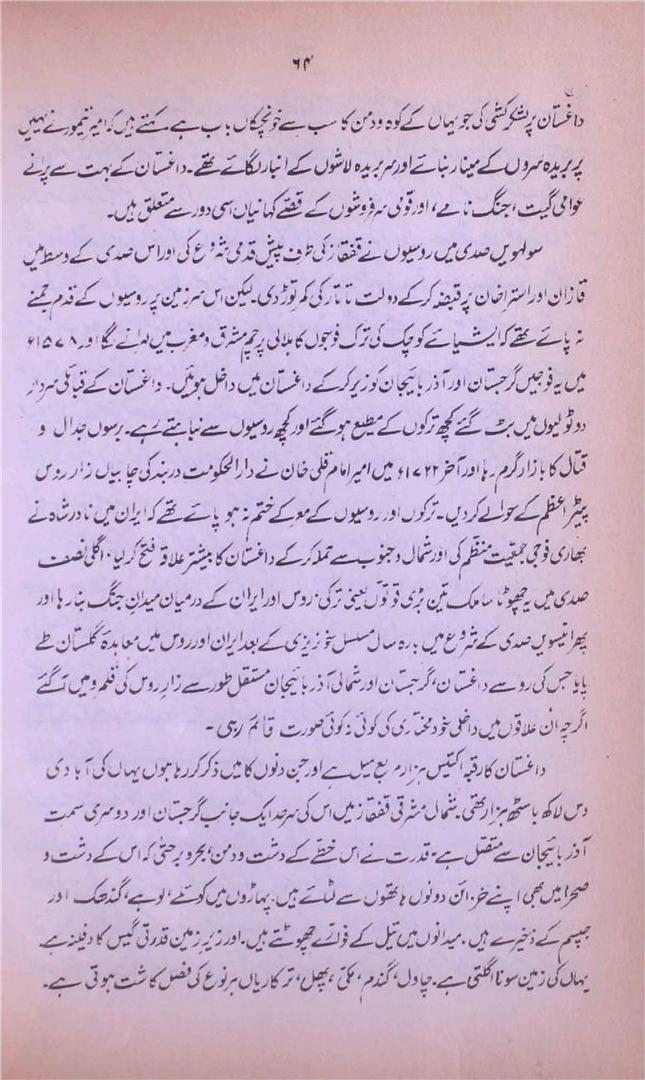 ۶۴
داغستان پر لشکر کشی کی جو یہاں کے کوہ ودمن کا سب سے خونچکاں باب ہے۔ کہتے ہیں کہ امیر تیمور نے یہیں
پر بریدہ سروں کے مینار بنائے اور سر بریدہ لاشوں کے انبار لگائے تھے۔ داغستان کے بہت سے پرانے
عوامی گیت، جنگ نامے، اور قومی سرفروشوں کے قصّے کہانیاں اسی دور سے متعلق ہیں۔
سولہویں صدی میں روسیوں نے قفقاز کی طرف پیش قدمی شروع کی اور اس صدی کے وسط میں
قازان اور استراخان پر قبضہ کرکے دولت تاتار کی کمر توڑ دی۔ لیکن اس سرزمین پر روسیوں کے قدم جمنے
نہ پائے تھے کہ ایشیائے کوچک کی ترک فوجوں کا ہلالی پرچم مشرق و مغرب میں لہرانے لگا اور ۱۵۷۸ء
میں یہ فوجیں گرجستان اور آذربائیجان کو زیر کرکے داغستان میں داخل ہوئیں۔ داغستان کے قبائلی سردار
دو ٹولیوں میں بٹ گئے کچھ ترکوں کے مطیع ہو گئے اور کچھ روسیوں سے نباہتے رہے۔ برسوں جدال و
قتال کا بازار گرم رہا اور آخر ۱۷۲۲ء میں امیر امام قلی خان نے دارالحکومت دربند کی چابیاں زار روس
پیٹر اعظم کے حوالے کر دیں۔ ترکوں اور روسیوں کے معرکے ختم نہ ہو پائے تھے کہ ایران میں نادر شاہ نے
بھاری فوجی جمعیت منظم کی اور شمال و جنوب سے حملہ کرکے داغستان کا بیشتر علاقہ فتح کر لیا۔ اگلی نصف
صدی میں یہ چھوٹا سا ملک تین بڑی قوتوں یعنی ترکی، روس اور ایران کے درمیان میدانِ جنگ بنا رہا اور
پھر انیسویں صدی کے شروع میں بارہ سال مسلسل خونریزی کے بعد ایران اور روس میں معاہدۂ گلستان طے
پایا جس کی رو سے داغستان، گرجستان اور شمالی آذربائیجان مستقل طور سے زار روس کی قلمرو میں آ گئے
اگرچہ ان علاقوں میں داخلی خود مختاری کی کوئی نہ کوئی صورت قائم رہی۔
داغستان کا رقبہ اکتیس ہزار مربع میل ہے اور جن دنوں کا میں ذکر کر رہا ہوں یہاں کی آبادی
دس لاکھ باسٹھ ہزار تھی۔ شمال مشرقی قفقاز میں اس کی سرحد ایک جانب گرجستان اور دوسری سمت
آذربائیجان سے متصل ہے۔ قدرت نے اس خطّے کے دشت و دمن، بحر و بر حتیٰ کہ اس کے دشت و
صحرا میں بھی اپنے خزائن دونوں ہاتھوں سے لٹائے ہیں۔ پہاڑوں میں کوئلے، لوہے، گندھک اور
جپسم کے ذخیرے ہیں۔ میدانوں میں تیل کے فوارے چھوٹتے ہیں۔ اور زیرِ زمین قدرتی گیس کا دفینہ ہے
یہاں کی زمین سونا اگلتی ہے۔ چاول، گندم، مکئی، پھل، ترکاریاں ہر نوع کی فصل کاشت ہوتی ہے۔